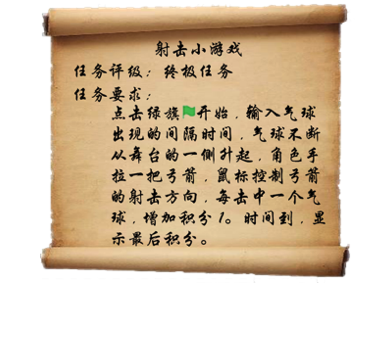 射击小游戏
任务评级：终极任务
任务要求：
点击绿旗开始，输入气球
出现的间隔时间，气球不断
从舞台的一侧升起，角色手
拉一把弓箭，鼠标控制弓箭
的射击方向，每击中一个气
球，增加积分1。时间到，显
示最后积分。